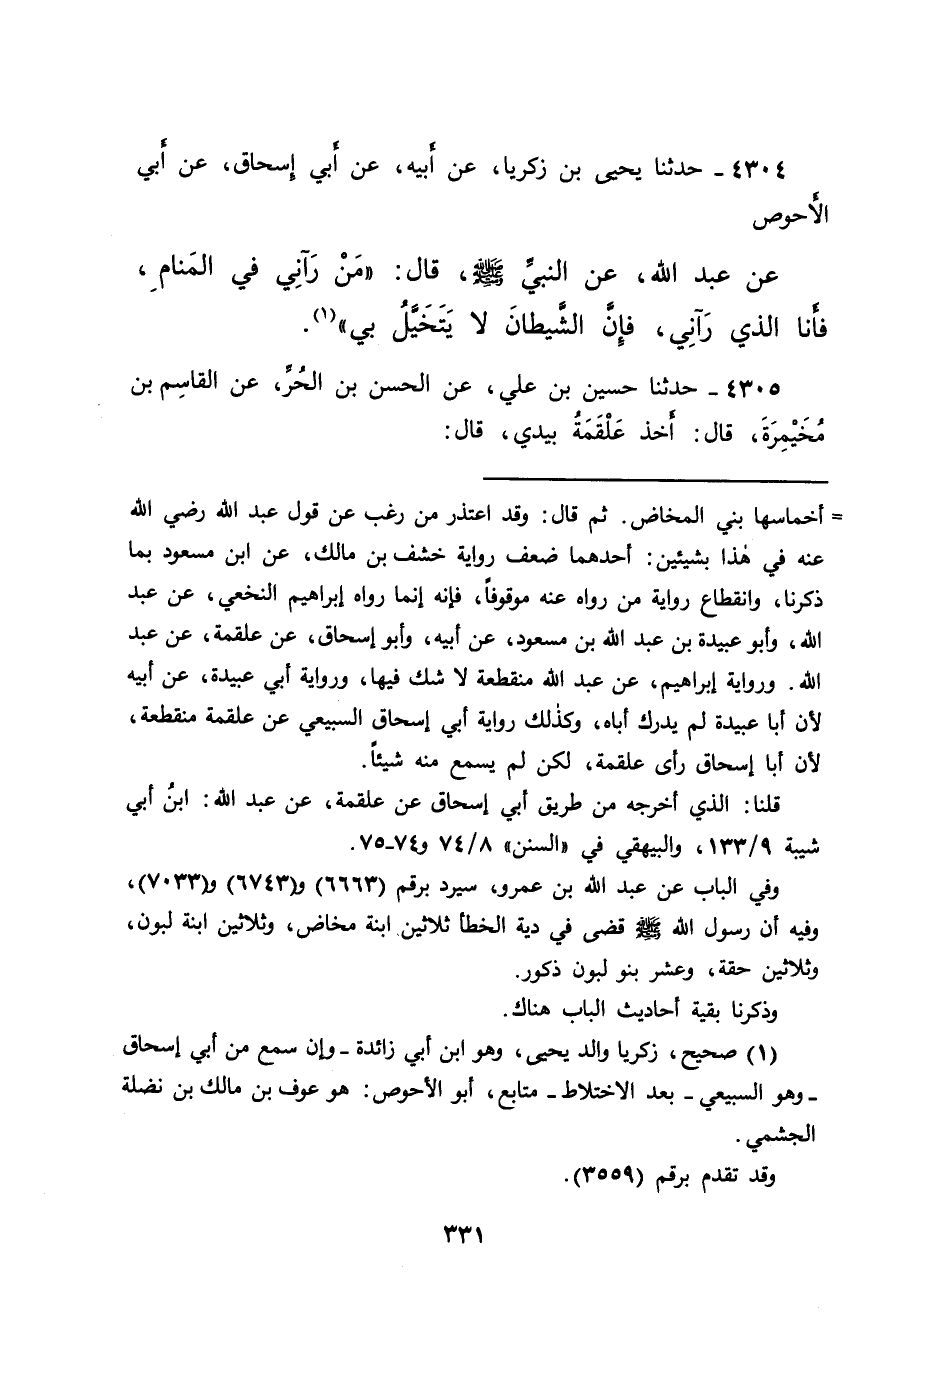 ٤٣٠٤ ـ حدثنا يحيى بن زكريا، عن أَبيه، عن أَبي إِسحاق، عن أَبي
الأَحوص
عن عبد الله، عن النبيِّ ﷺ، قال: «مَنْ رَآنِي في المَنامِ،
فأَنا الذي رَآنِي، فإِنَّ الشَّيطانَ لا يَتَخَيَّلُ بي»(١).
٤٣٠٥ ـ حدثنا حسين بن علي، عن الحسن بن الحُرِّ، عن القاسِم بن
مُخَيْمِرَةَ، قال: أَخذ عَلْقَمَةُ بيدي، قال:
= أخماسها بني المخاض. ثم قال: وقد اعتذر من رغب عن قول عبد الله رضي الله
عنه في هٰذا بشيئين: أحدهما ضعف رواية خشف بن مالك، عن ابن مسعود بما
ذكرنا، وانقطاع رواية من رواه عنه موقوفاً، فإنه إنما رواه إبراهيم النخعي، عن عبد
الله، وأبو عبيدة بن عبد الله بن مسعود، عن أبيه، وأبو إسحاق، عن علقمة، عن عبد
الله. ورواية إبراهيم، عن عبد الله منقطعة لا شك فيها، ورواية أبي عبيدة، عن أبيه
لأن أبا عبيدة لم يدرك أباه، وكذٰلك رواية أبي إسحاق السبيعي عن علقمة منقطعة،
لأن أبا إسحاق رأى علقمة، لكن لم يسمع منه شيئاً.
قلنا: الذي أخرجه من طريق أبي إسحاق عن علقمة، عن عبد الله: ابنُ أبي
شيبة ١٣٣/٩، والبيهقي في «السنن» ٧٤/٨ و٧٤ـ٧٥.
وفي الباب عن عبد الله بن عمرو، سيرد برقم (٦٦٦٣) و(٦٧٤٣) و(٧٠٣٣)،
وفيه أن رسول الله ﷺ قضى في دية الخطأ ثلاثين ابنة مخاض، وثلاثين ابنة لبون،
وثلاثين حقة، وعشر بنو لبون ذكور.
وذكرنا بقية أحاديث الباب هناك.
(١) صحيح، زكريا والد يحيى، وهو ابن أبي زائدة ـ وإن سمع من أبي إسحاق
ـ وهو السبيعي ـ بعد الاختلاط ـ متابع، أبو الأحوص: هو عوف بن مالك بن نضلة
الجشمي.
وقد تقدم برقم (٣٥٥٩).
٣٣١